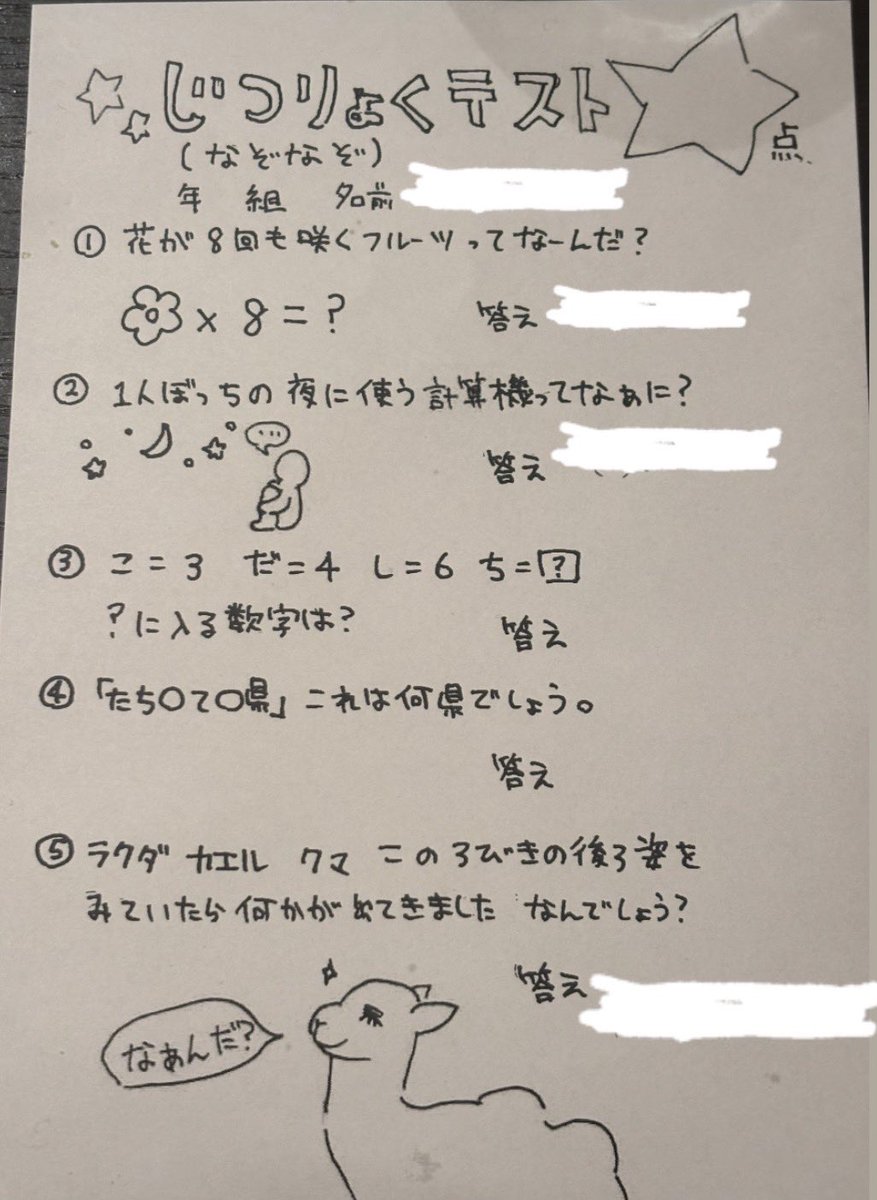 じつりょくテスト
点
(なぞなぞ)
年 組 名前
① 花が8回も咲くフルーツってなーんだ?
× 8 = ?
答え
② 1人ぼっちの夜に使う計算機ってなぁに?
...
答え
③ こ=3 だ=4 し=6 ち=?
?に入る数字は?
答え
④ 「たち〇て〇県」これは何県でしょう。
答え
⑤ ラクダ カエル クマ この3びきの後ろ姿を
みていたら何かが出てきました なんでしょう?
答え
なぁんだ?